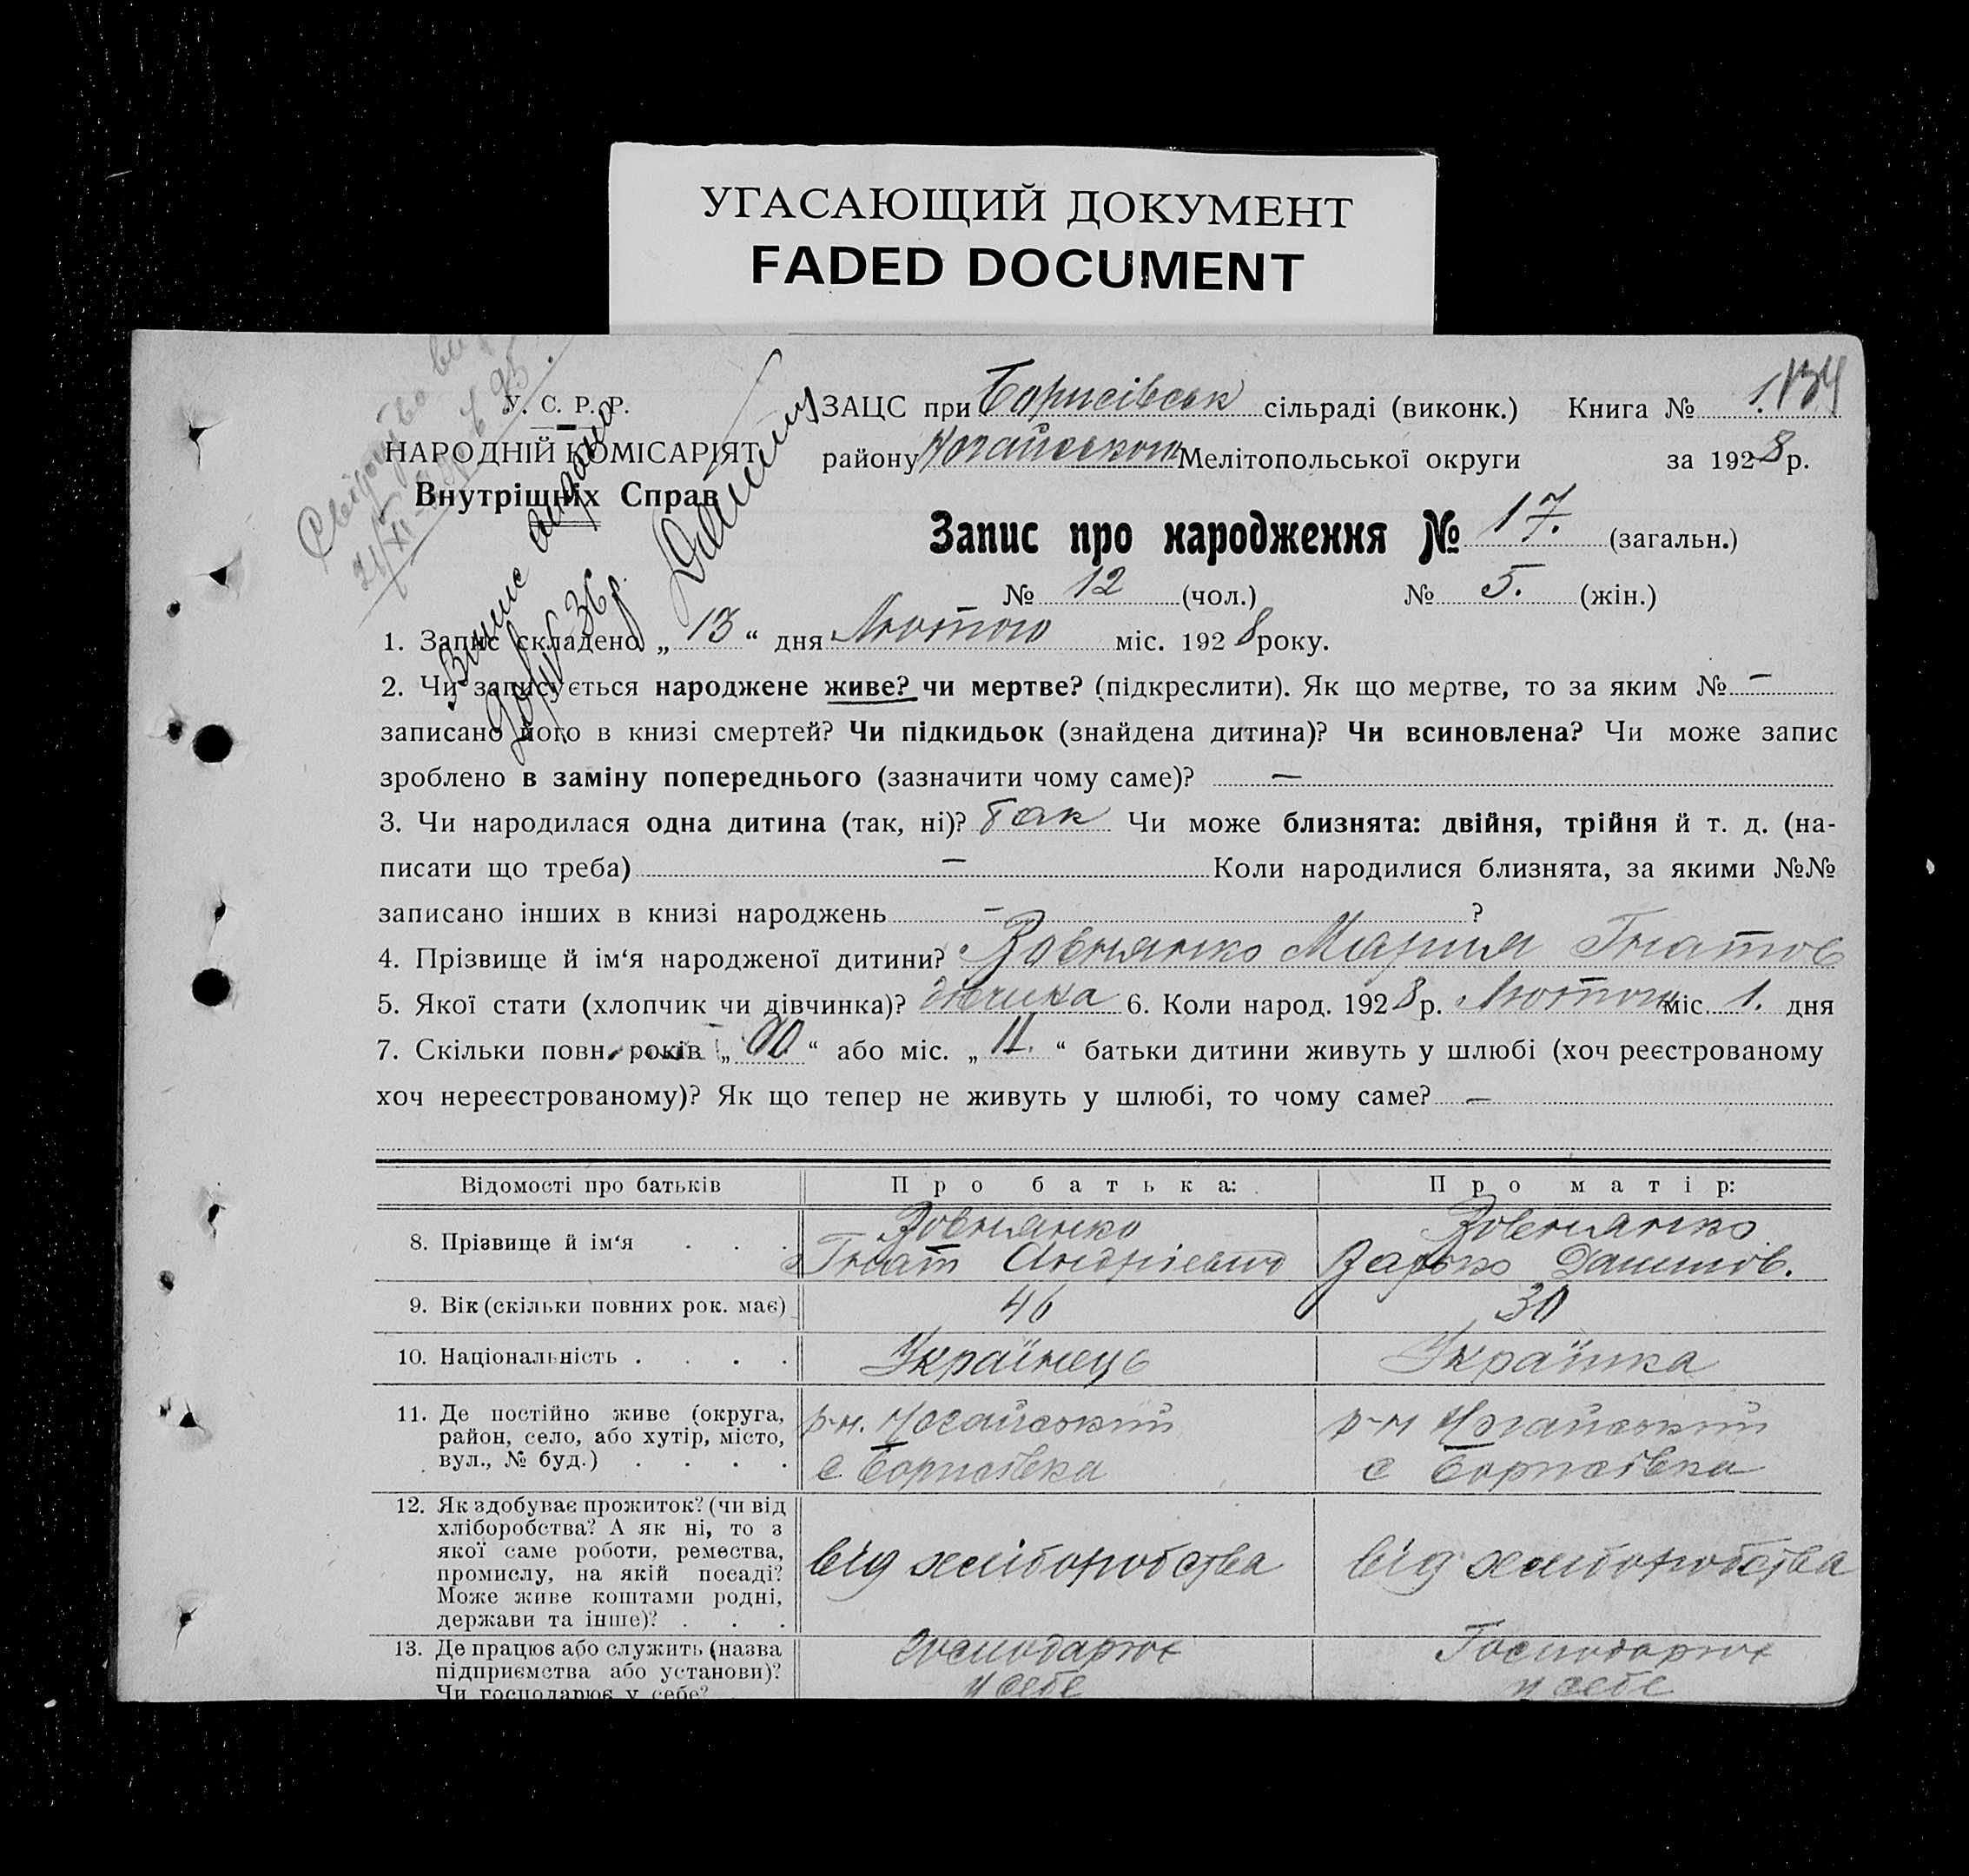 УГАСАЮЩИЙ ДОКУМЕНТ
FADED DOCUMENT
У. С. Р. Р.
НАРОДНІЙ КОМІСАРІЯТ
Внутрішніх Справ
ЗАЦС при Борисівськ сільраді (виконк.) Книга № 1.
134
району Ногайського Мелітопольської округи за 1928 р.
Запис про народження № 17. (загальн.)
№ 12 (чол.) № 5. (жін.)
Випис видано
36 р.
1. Запис складено „ 13 “ дня Лютого міс. 1928 року.
2. Чи записується народжене живе? чи мертве? (підкреслити). Як що мертве, то за яким № —
записано його в книзі смертей? Чи підкидьок (знайдена дитина)? Чи всиновлена? Чи може запис
зроблено в заміну попереднього (зазначити чому саме)? —
3. Чи народилася одна дитина (так, ні)? Так Чи може близнята: двійня, трійня й т. д. (на-
писати що треба) — Коли народилися близнята, за якими №№
записано інших в книзі народжень — ?
4. Прізвище й ім‘я народженої дитини? Мария Гнатов
5. Якої стати (хлопчик чи дівчинка)? 6. Коли народ. 1928 р. Лютого міс. 1. дня
7. Скільки повн. років „ “ або міс. „ 11. “ батьки дитини живуть у шлюбі (хоч реєстрованому
хоч нереєстрованому)? Як що тепер не живуть у шлюбі, то чому саме? —
Відомості про батьків Про батька: Про матір:
8. Прізвище й ім‘я . . .
Гнат Андрієвич
9. Вік (скільки повних рок. має) 46 30
10. Національність . . . . Українець Українка
11. Де постійно живе (округа, район, село, або хутір, місто, вул., № буд.) . . . .
р-н. Ногайський
с. Борисівка
р-н Ногайський
с Борисівка
12. Як здобуває прожиток? (чи від хліборобства? А як ні, то з якої саме роботи, ремества, промислу, на якій посаді? Може живе коштами родні, держави та інше)? . . .
від хліборобства
від хліборобства
13. Де працює або служить (назва підприємства або установи)?
Чи господарює у себе?
Господарює
у себе
Господарює
у себе